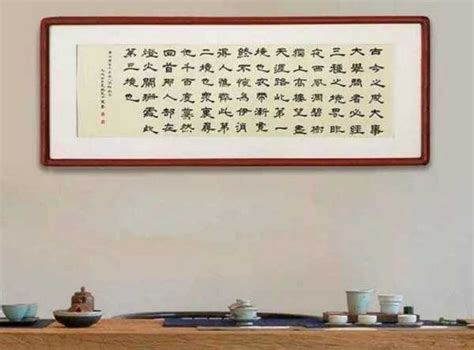 古今之成大事
大學問者必經
三種之境界昨
夜西風凋碧樹
獨上高樓望盡
天涯路此第一
境也衣帶漸寬
終不悔為伊消
得人憔悴此第
二境也衆裏尋
他千百度驀然
回首那人卻在
燈火闌珊處此
第三境也